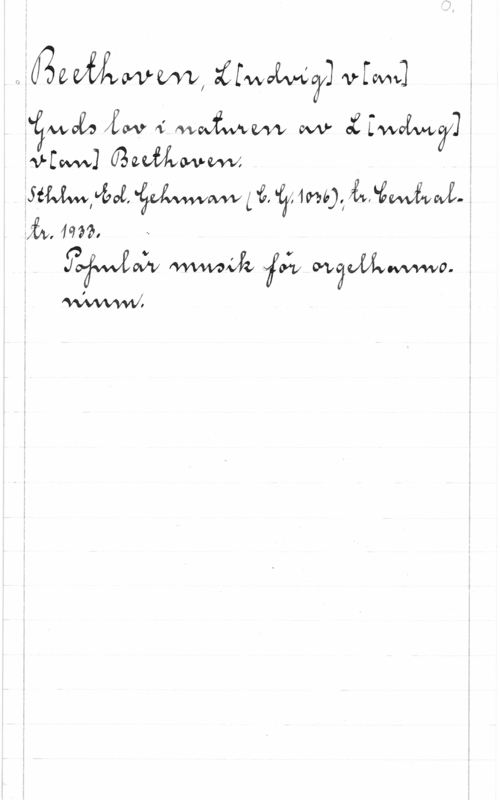 O.
Beethoven, L[udvig] v[an]
Guds lov i naturen av L[udvig]
v[an] Beethoven.
Sthlm, Ed. Gehrman (E. G. 1036); tr. Central-
tr. 1933.
Populär musik för orgelharmo-
nium.